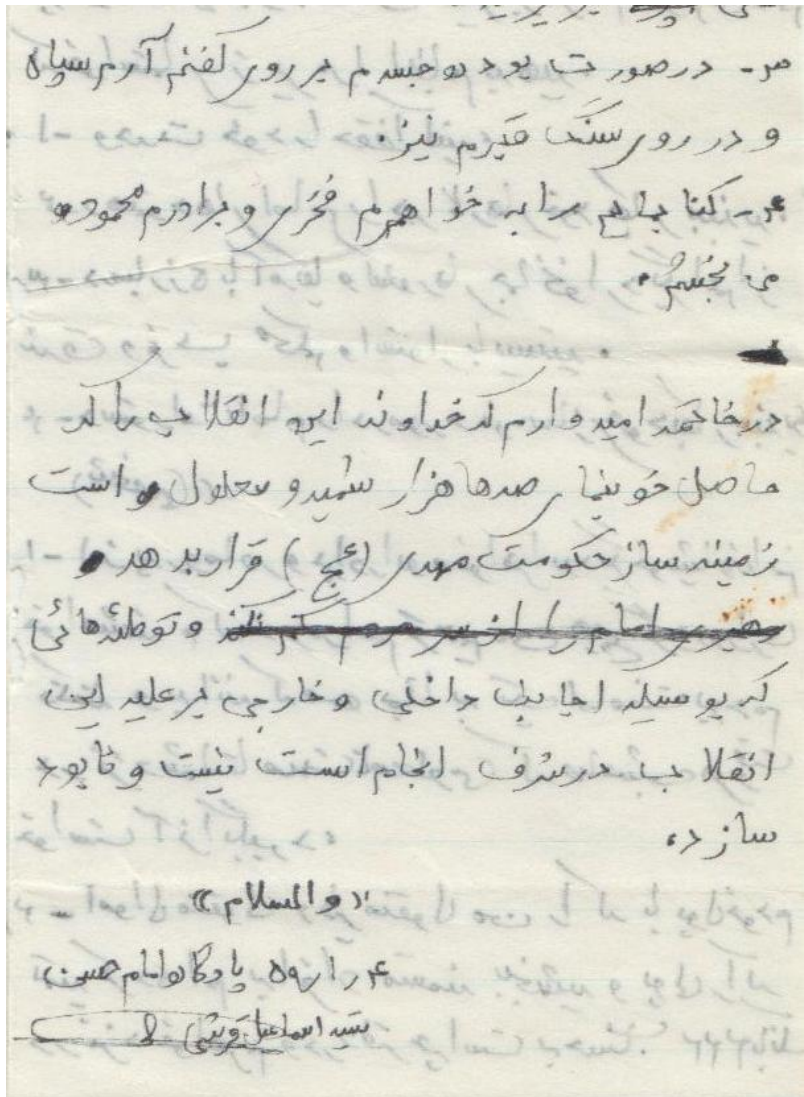 ۳- در صورت بودن جسدم بر روی کفنم آرم سپاه
و در روی سنگ قبرم نیز.
۴- کتابهایم را به خواهرم فخری و برادرم محمود
می بخشم.
در خاتمه امیدوارم که خداوند این انقلاب را که
حاصل خونهای صدها هزار شهید و معلول است
زمینه ساز حکومت مهدی (عج) قرار بدهد و
و توطئه هائی
که بوسیله اجانب داخلی و خارجی بر علیه این
انقلاب در شرف انجام است نیست و نابود
سازد.
«والسلام»
پادگان امام حسین
سید اسماعیل قریشی